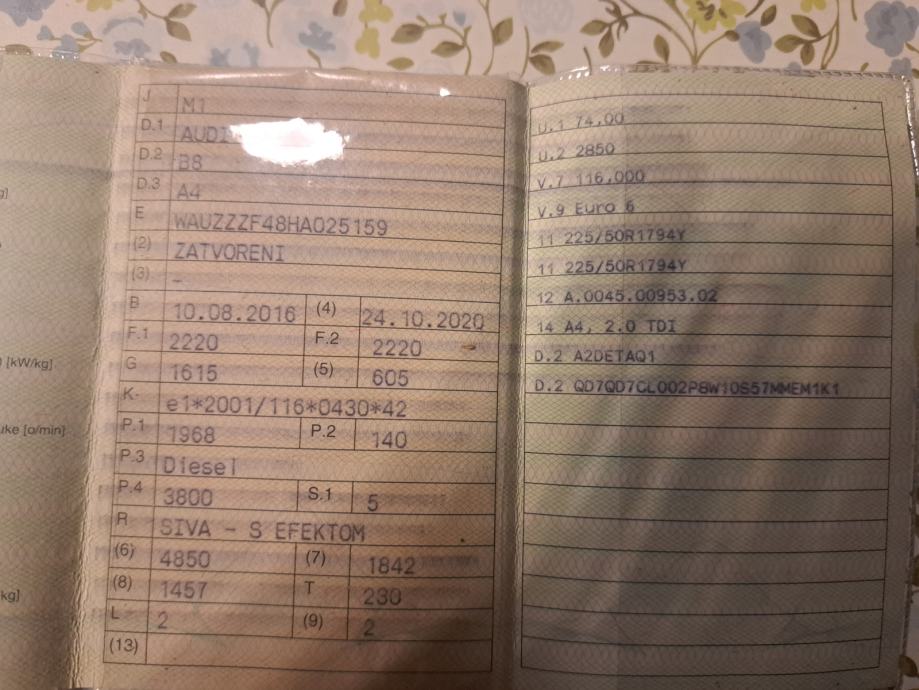 g]
) [kW/kg]
uke [o/min]
kg]
J M1
D.1 AUDI
D.2 B8
D.3 A4
E WAUZZZF48HA025159
(2) ZATVORENI
(3) -
B 10.08.2016 (4) 24.10.2020
F.1 2220 F.2 2220
G 1615 (5) 605
K e1*2001/116*0430*42
P.1 1968 P.2 140
P.3 Diesel
P.4 3800 S.1 5
R SIVA - S EFEKTOM
(6) 4850 (7) 1842
(8) 1457 T 230
L 2 (9) 2
(13)
U.1 74,00
U.2 2850
V.7 116,000
V.9 Euro 6
11 225/50R1794Y
11 225/50R1794Y
12 A.0045.00953.02
14 A4, 2.0 TDI
D.2 A2DETAQ1
D.2 QD7QD7CL002P8W10S57MMEM1K1